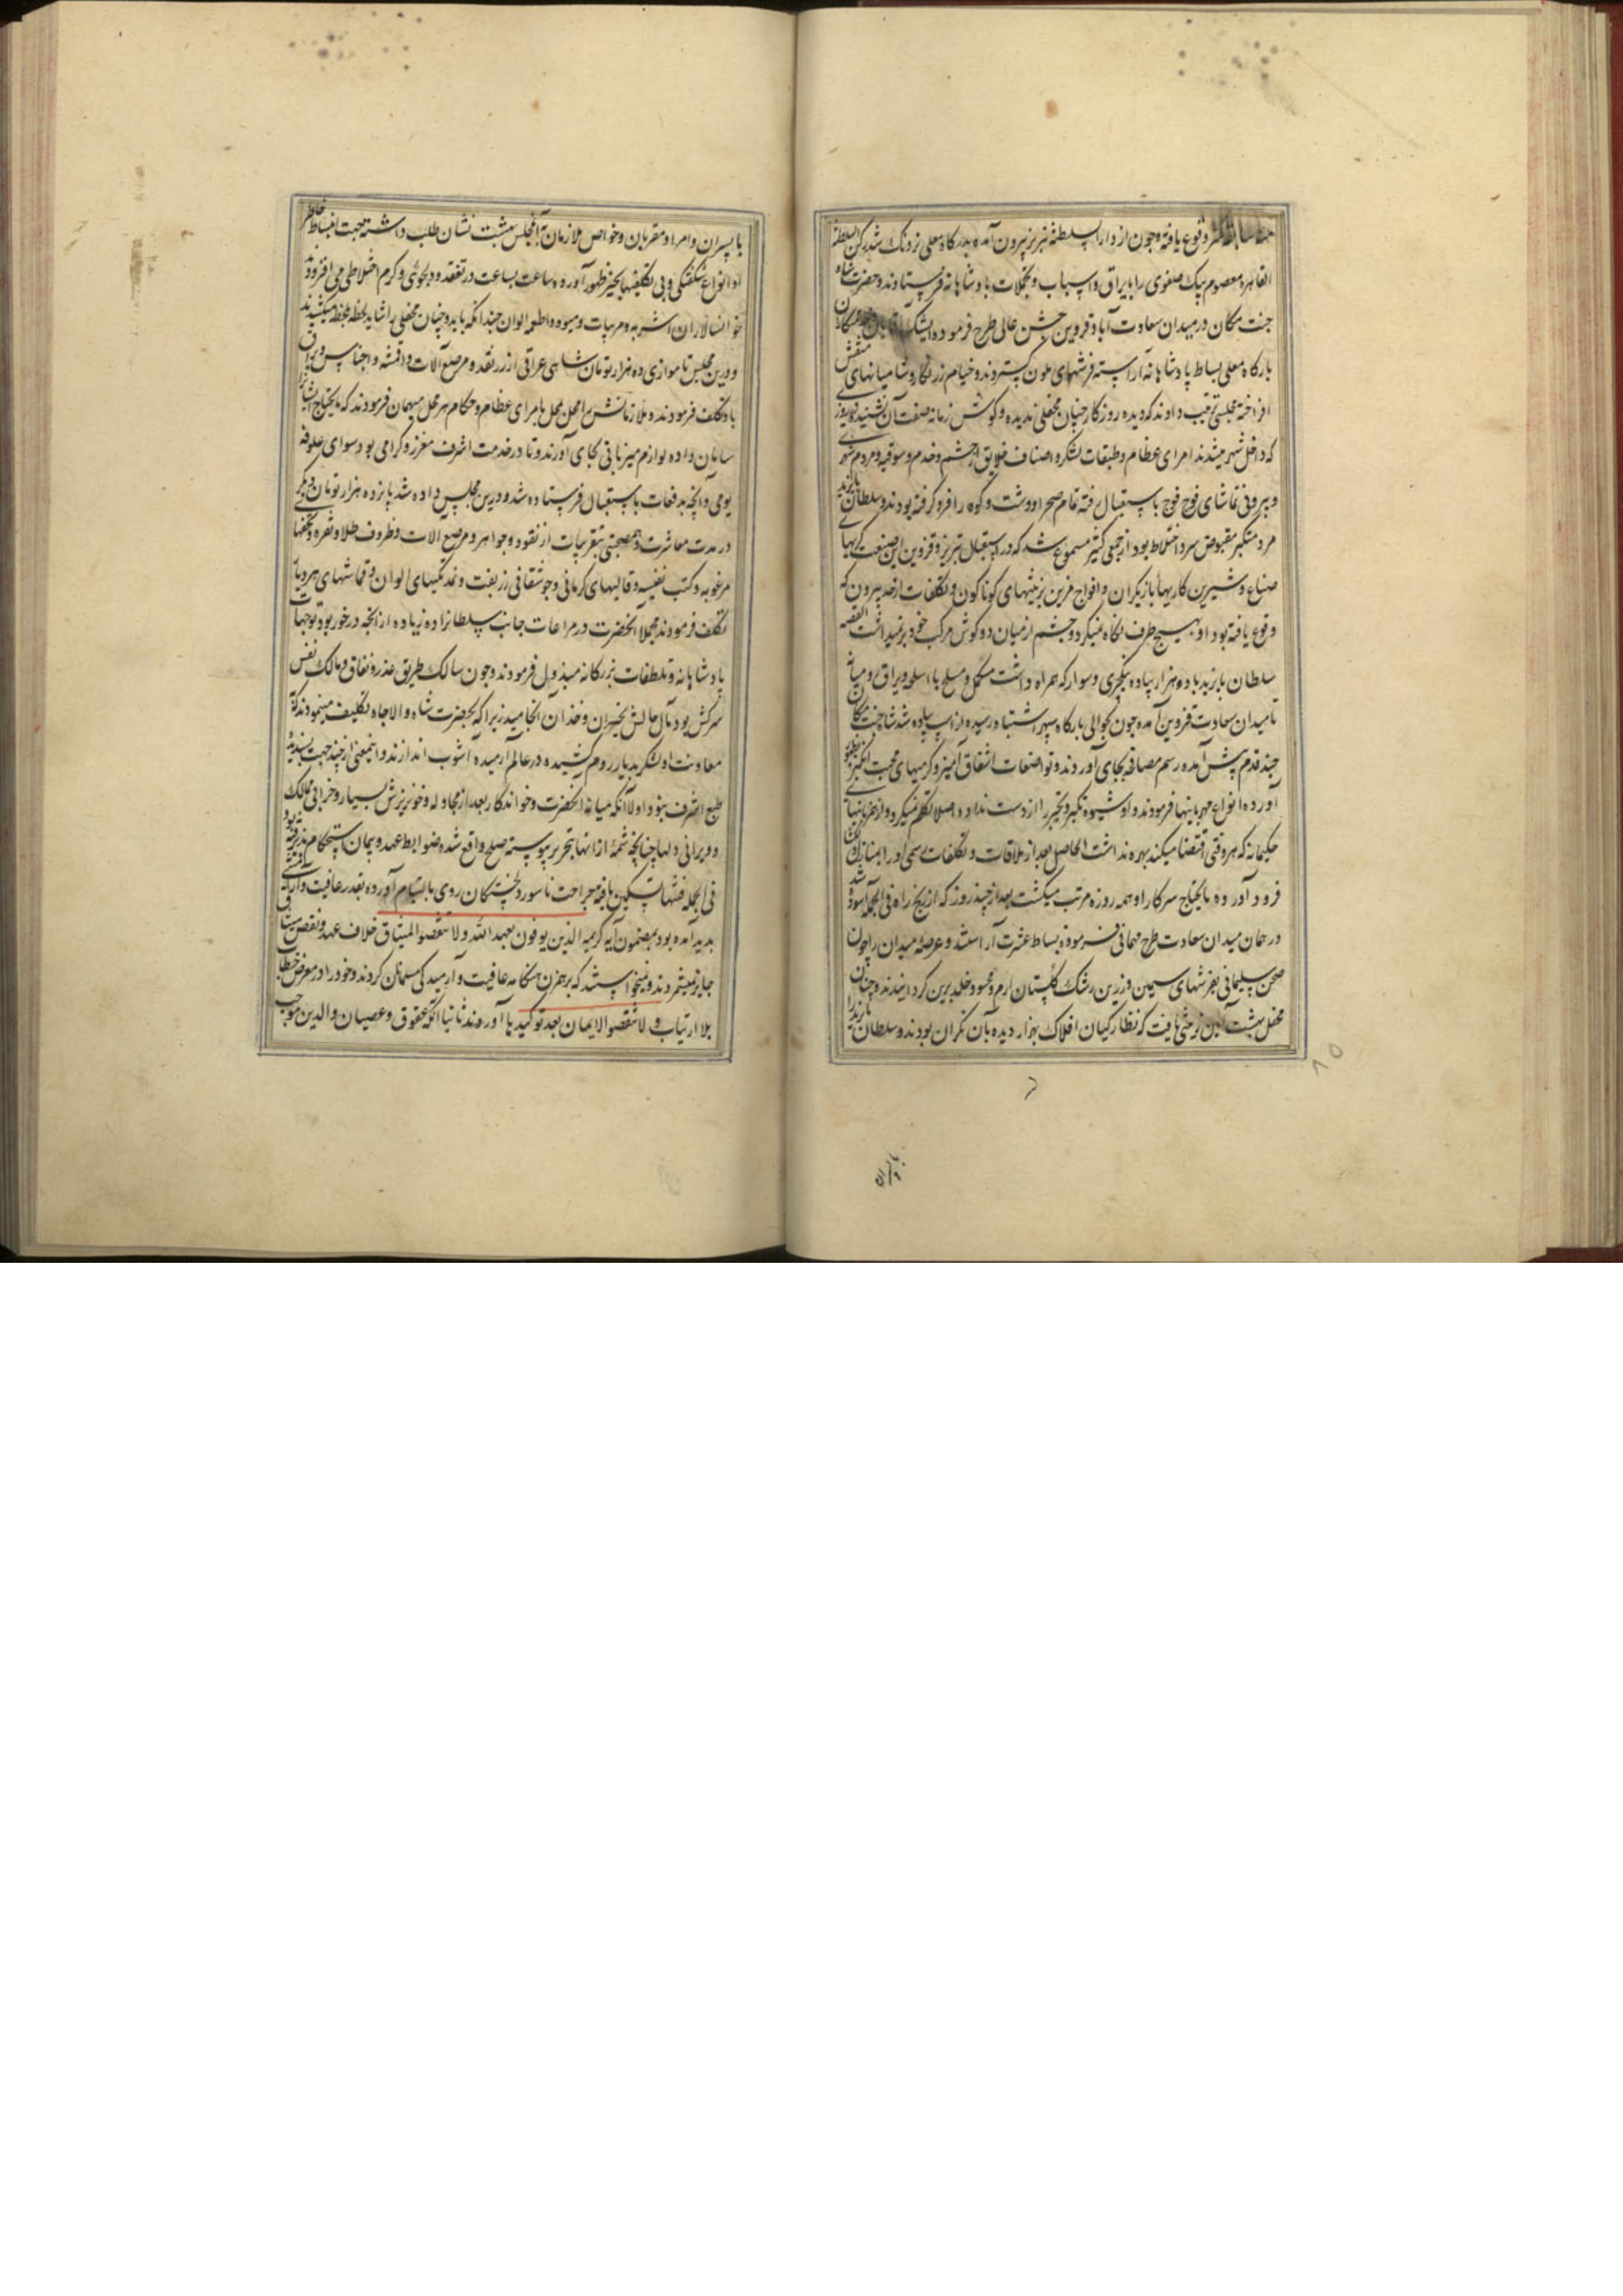 وقوع یافته و چون از دار السلطنه تبریز بیرون آمده بدرگاه معلی نزدیک شد رکن السلطنه
القاهره معصوم بیک صفوی را با یراق و اسباب و تجملات پادشاهانه فرستادند و حضرت شاه
جنت مکان در میدان سعادت آباد قزوین جشن عالی طرح فرموده
بارگاه معلی بساط پادشاهانه آراسته فرشهای ملون گستردند و خیام زرنگار و شامیانهای منقش
افراخته مجلسی ترتیب دادند که دیده روزگار چنان محفلی ندیده و گوش زمانه صفت آن نشنیده و روز
که داخل شهر میشدند امرای عظام و طبقات لشکر و اصناف خلایق از حشم و خدم و سوقیه و مردم شهری
و بیرونی تماشای فوج فوج باستقبال رفته تمام صحرا و دشت و کوه را فرو گرفته بودند و سلطان بایزید
مرد متکبر مقبوض سرد اختلاط بود از جمعی کثیر مسموع شد که در استقبال تبریز و قزوین این صنعت گریهای
صناع و شیرین کاریها بازیگران و افواج مزین بزینتهای گوناگون و تکلفات از حد بیرون که
وقوع یافته بود او بهیچ طرف نگاه نمیکرد و چشم از میان دو گوش مرکب خود برنمیداشت القصه
سلطان بایزید با ده هزار پیاده ینکچری و سوار که همراه داشت مکمل و مسلح با اسلحه و یراق
تا میدان سعادت قزوین آمده چون بحوالی بارگاه سپهر اشتباه رسیده از اسب پیاده شد شاه جنت مکان
چند قدم پیش آمده رسم مصافحه بجای آوردند و تواضعات اشفاق آمیز و گرمیهای محبت انگیز بظهور
آورده انواع مهربانیها فرمودند و او شیوه تکبر و تجبر را از دست نداده اصلا تکلم نمیکرد و از همزبانیهای
حکیمانه که هر وقتی اقتضا میکند بهره نداشت الحاصل بعد از ملاقات و تکلفات رسمی او را بمنازل
فرود آورده مایحتاج سرکار او همه روزه مرتب میگشت بعد از چند روز که از رنج راه فی الجمله آسوده شد
در همان میدان سعادت طرح مهمانی فرموده بساط عشرت آراستند و عرصه میدان را چون
صحن سلیمانی بفرشهای سیمین و زرین رشک گلستان ارم و محسود خلد برین گردانیدند و چنان
محفل بهشت آیین تزیین یافت که نظارگیان افلاک بهزار دیده بآن نگران بودند و سلطان بایزید را
با پسران و امرا و مقربان و خواص ملازمان بآن مجلس بهشت نشان طلب داشته جهت انبساط خاطر
او انواع شگفتگی و بی تکلفیها بحیز ظهور آورده ساعت بساعت در تفقد و دلجوئی و گرم اختلاطی می افزودند
خوانسالاران اشربه و مربیات و میوه و اطعمه الوان چندانکه باید و چنان محفلی را شاید لحظه بلحظه میکشیدند
و درین مجلس تا موازی ده هزار تومان شاهی عراقی از زر نقد و مرصع آلات و اقمشه و اجناس و یراق
باو تکلف فرمودند و ملازمانش را محل بمحل بامرای عظام و حکام هر محل میهمان فرمودند که مایحتاج ایشانرا
سامان داده لوازم میزبانی بجای آورند و تا در خدمت اشرف معزز و گرامی بود سوای علوفه
یومی و آنچه بدفعات باستقبال فرستاده شد و درین مجلس داده شد پانزده هزار تومان دیگر
در مدت معاشرت و همصحبتی بتقریبات از نقود و جواهر و مرصع آلات و ظروف طلا و نقره و تحفهای
مرغوبه و کتب نفیسه و قالیهای کرمانی و جوشقانی زربفت و نمد تکیهای الوان و قماشهای هر دیار
تکلف فرمودند مجملا آنحضرت در مراعات جانب سلطانزاده زیاده از آنچه در خور بود توجهات
پادشاهانه و تلطفات بزرگانه مبذول فرمودند و چون سالک طریق غدر و نفاق و مالک نفس
سرکش بود مآل حالش بخسران و خذلان انجامید زیرا که بحضرت شاه والاجاه تکلیف مینمود که
معاونت او لشکر بدیار روم کشیده در عالم آرمیده آشوب اندازند و اینمعنی از چند جهت پسندیده
طبع اشرف نبود اولا آنکه میانه آنحضرت و خواندگار بعد از مجادله و خونریزش بسیار و خرابی ممالک
و ویرانی دلها چنانچه شمه از آنها بتحریر پیوسته صلح واقع شده ضوابط عهد و پیمان استحکام پذیرفته بود
فی الجمله فتنها تسکین یافته جراحت ناسور دلخستگان روی بالتیام آورده بقدر عافیت و آرامشی
پدید آمده بود بمضمون آیه کریمه الذین یوفون بعهد الله ولا ینقضوا المیثاق خلاف عهد و نقض میثاق
جایز نمیشمردند و نمیخواستند که برهمزن هنگامه عافیت و آرمیدگی مسلمانان گردند و خود را در معرض خطاب
بلا ارتیاب و لا تنقضوا الایمان بعد توکیدها آورند ثانیا آنکه عقوق و عصیان والدین موجب